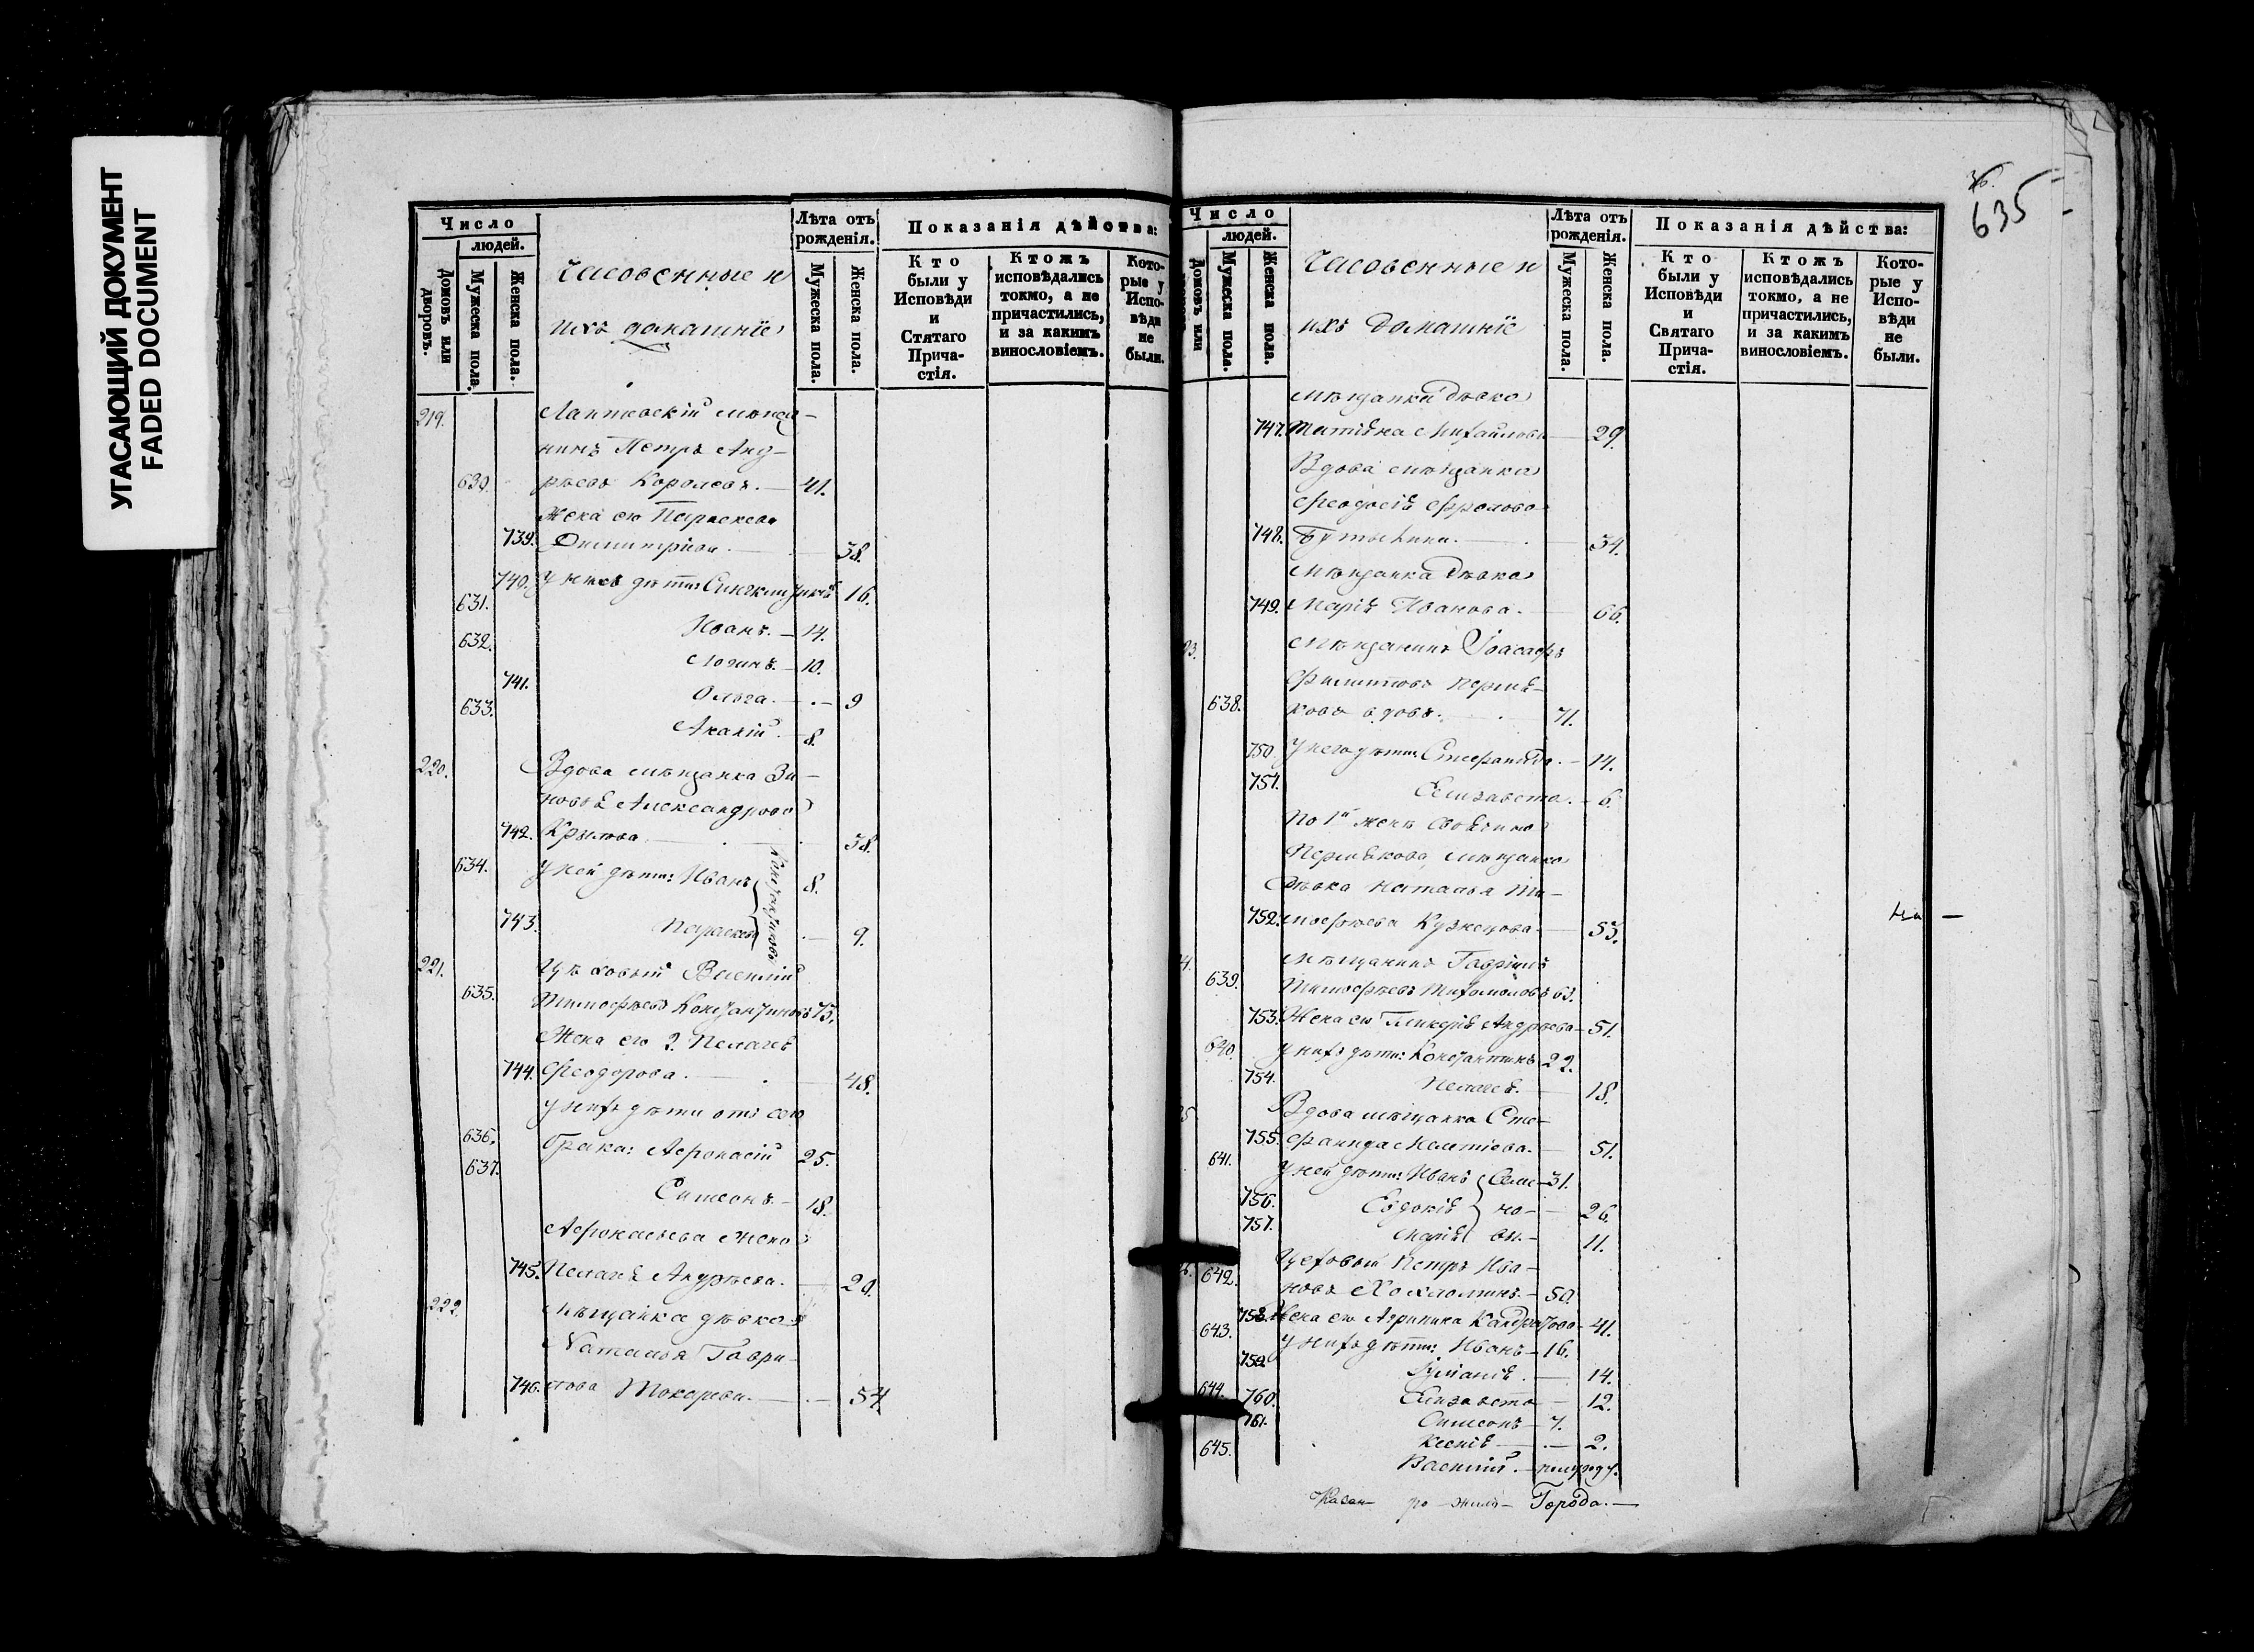 УГАСАЮЩИЙ ДОКУМЕНТ
FADED DOCUMENT
Число
людей.
Домовъ или дворовъ.
Мужеска пола.
Женска пола.
Часовенные и
ихъ домашніе
Лѣта отъ рожденія.
Мужеска пола.
Женска пола.
Показанія дѣйства:
Кто были у Исповѣди и Стятаго Причастія.
Ктожъ исповѣдались токмо, а не причастились, и за какимъ винословіемъ.
Которые у Исповѣди не были.
219. мѣща-
нинъ Петръ Анд-
630. рѣевъ Королевъ. — 41.
Жена его Параскева
739. Димитріева. — 38.
740. У нихъ дѣти: 16.
631. Иванъ. — 14.
632. Логинъ. — 10.
741. Ольга. — 9
633. Акакій. — 8.
220. Вдова мѣщанка Зи-
новья Александрова
742. Крылова 38.
634. У ней дѣти: Иванъ 8.
743. Параскева 9.
221. Цѣховый Василій
635. Тимофѣевъ Константиновъ 75.
Жена его 2. Пелагея
744. Феодорова. — 48.
У нихъ дѣти отъ сего
636. брака: Афонасій 25.
637. Симеонъ — 18.
Афонасьева жена
745. Пелагея Андрѣева. — 20.
222. Мѣщанка дѣвка
Наталья Гаври-
746. лова Токарева. — 54
36.
635
Число
людей.
Домовъ или
Мужеска пола.
Женска пола.
Часовенные и
ихъ домашніе
Лѣта отъ рожденія.
Мужеска пола.
Женска пола.
Показанія дѣйства:
Кто были у Исповѣди и Святаго Причастія.
Ктожъ исповѣдались токмо, а не причастились, и за какимъ винословіемъ.
Которые у Исповѣди не были.
Мѣщанка дѣвка
747. Михайлова — 29.
Вдова мѣщанка
Феодосія Фролова
748. 34.
Мѣщанка дѣвка
749. Марія Иванова. 66.
Мѣщанинъ Іоасафъ
Филиповъ Перми-
638. ковъ вдовъ. 71.
750. У него дѣти: Стефанида. — 14.
751. Елизавета. — 6.
По 1й женѣ
Пермякова, мѣщанка
дѣвка Наталья Ти-
752. мофѣева Кузнецова — 53.
Мѣщанинъ Гавріилъ
639. Тимофѣевъ 63.
753. Жена его Гликерія Андрѣева — 51.
640. У нихъ дѣти: Константинъ 22.
754. Пелагея. 18.
Вдова мѣщанка Сте-
755. фанида Мелетіева. — 51.
641. У ней дѣти: Иванъ Семе- 31.
756. Евдокія но- 26.
757. Марія вы. — 11.
Цеховый Петръ Ива-
642. новъ — 50.
758. Жена его Агрипина 41.
643. У нихъ дѣти: Иванъ — 16.
759. 14.
760. Елизавета — 12.
644. Симеонъ — 7.
761. Ксенія — 2.
645. Василій. — полугоду.
Города. —